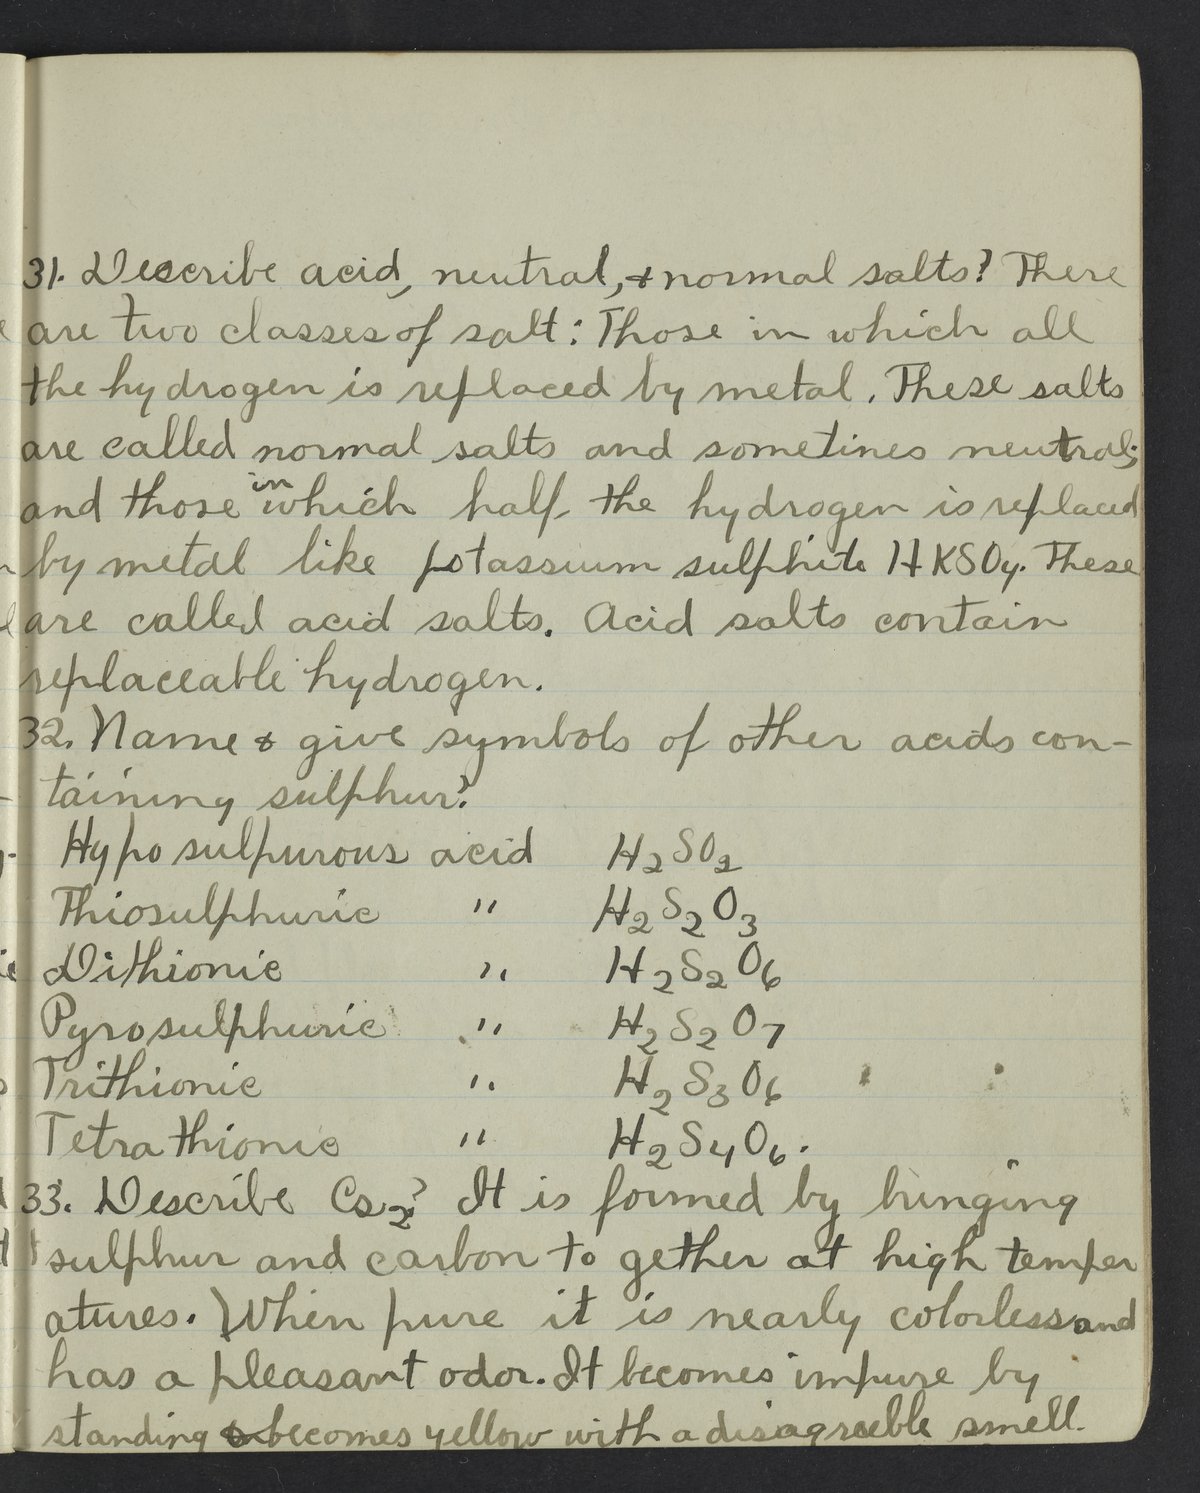 31. Describe acid, neutral, & normal salts? There
are two classes of salt: Those in which all
the hydrogen is replaced by metal. These salts
are called normal salts and sometines neutral;
and those in which half the hydrogen is replaced
by metal like potassium sulphite HKSO4. These
are called acid salts. Acid salts contain
replaceable hydrogen.
32. Name & give symbols of other acids con-
taining sulphur?
Hypo sulpurous acid H2SO2
Thiosulphuric " H2S2O3
Dithionic " H2S2O6
Pyrosulphuric " H2S2O7
Trithionic " H2S3O6
Tetrathionic " H2S4O6.
33. Describe Cs2? It is formed by bringing
sulphur and carbon to gether at high temper
atures. When pure it is nearly colorless and
has a pleasant odor. It becomes impure by
standing & becomes yellow with a disagreeble smell.